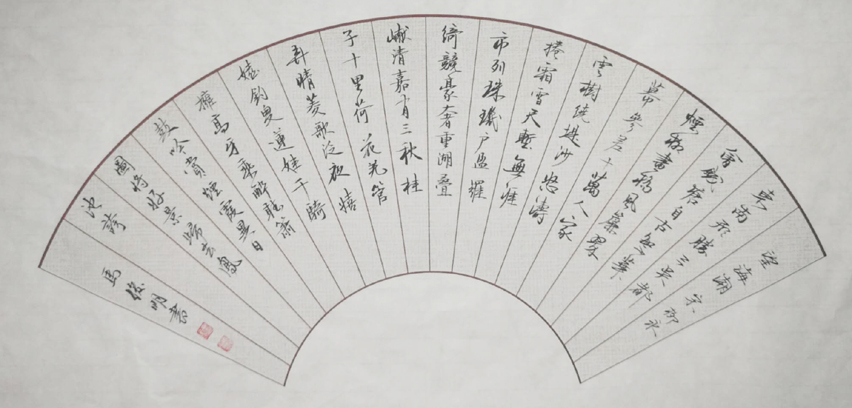 望海潮 宋 柳永
東南形勝三吳都
會錢塘自古繁華
煙柳畫橋風簾翠
幕參差十萬人家
雲樹繞堤沙怒濤
捲霜雪天塹無涯
市列珠璣戶盈羅
綺競豪奢重湖疊
巘清嘉有三秋桂
子十里荷花羌管
弄晴菱歌泛夜嬉
嬉釣叟蓮娃千騎
擁高牙乘醉聽簫
鼓吟賞煙霞異日
圖將好景歸去鳳
池誇
馬俊明書